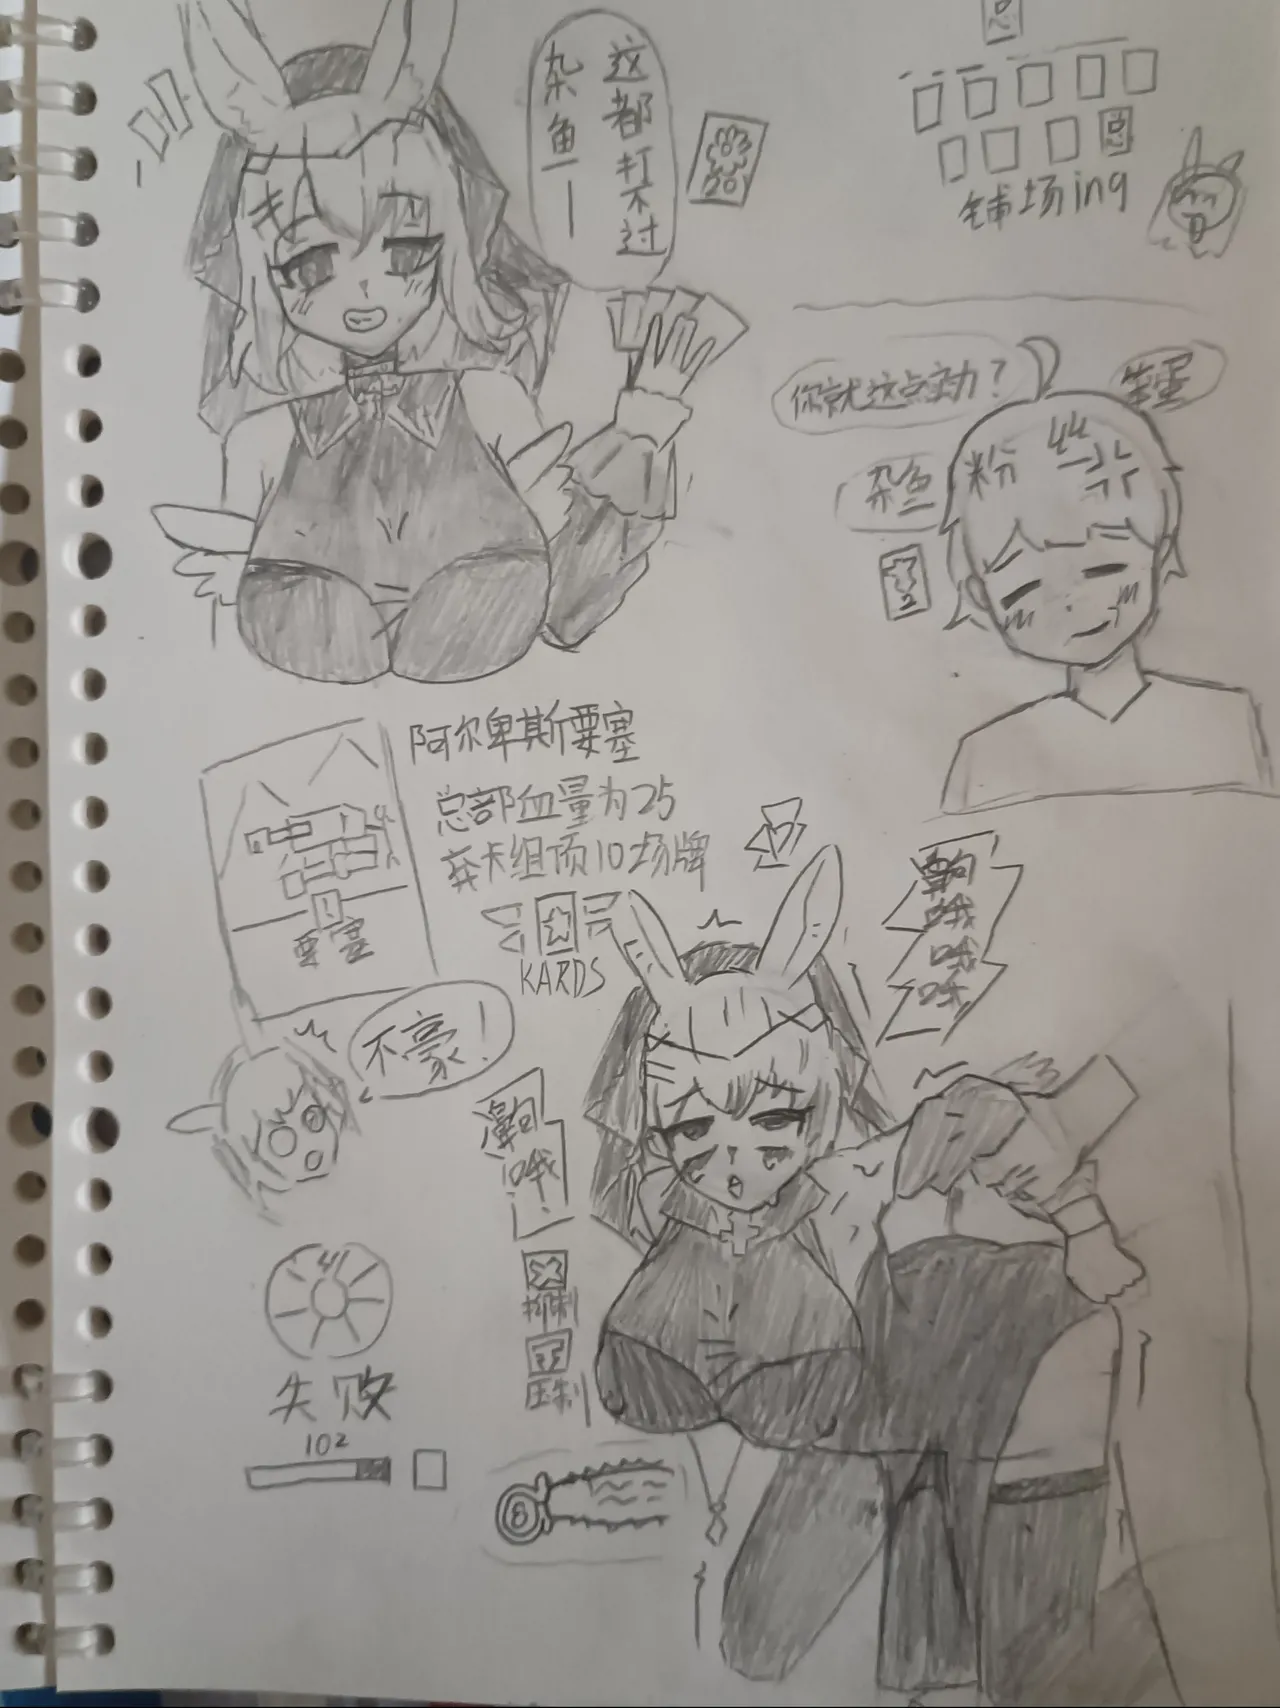 这都打不过
杂鱼一
总
总
铺场ing
你就这点实力？
笨蛋
杂鱼
粉丝
2
阿尔卑斯要塞
总部血量为25
弃卡组顶10场牌
要塞
KARDS
不豪！
齁哦哦
齁哦！
抑制
压制
失败
102
8